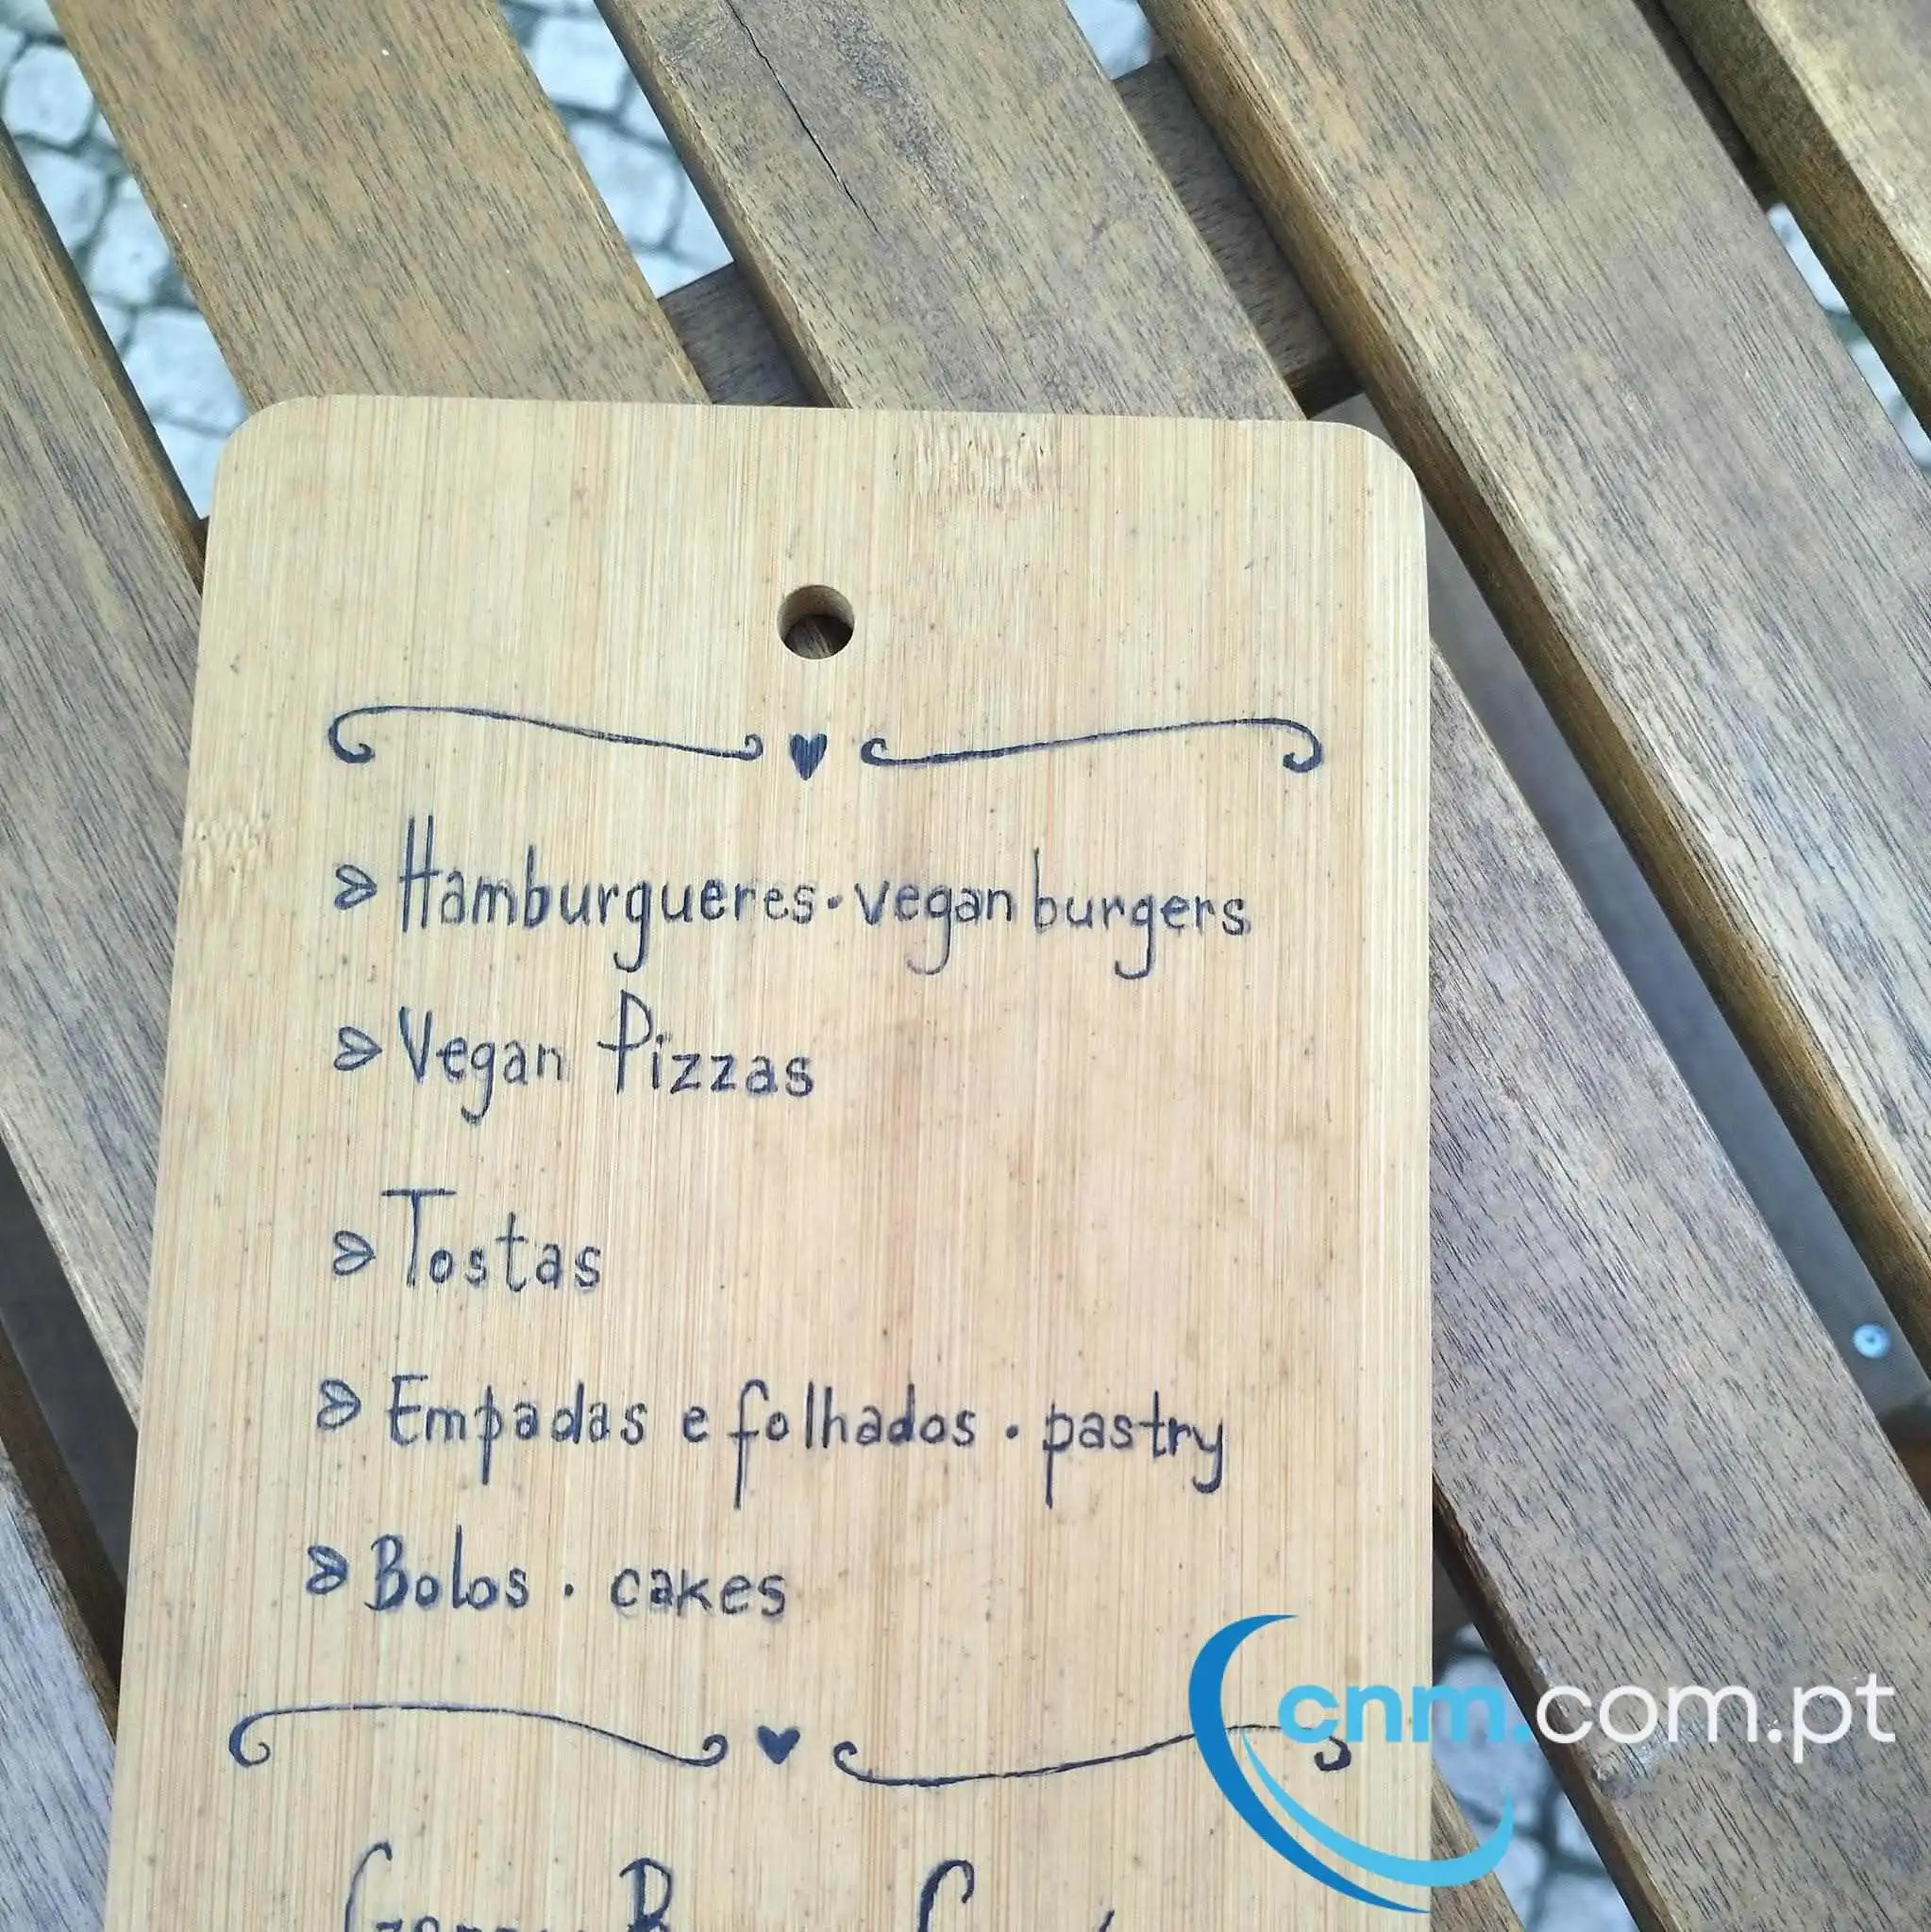 Hamburgueres · vegan burgers
Vegan Pizzas
Tostas
Empadas e folhados · pastry
Bolos · cakes
cnm.com.pt